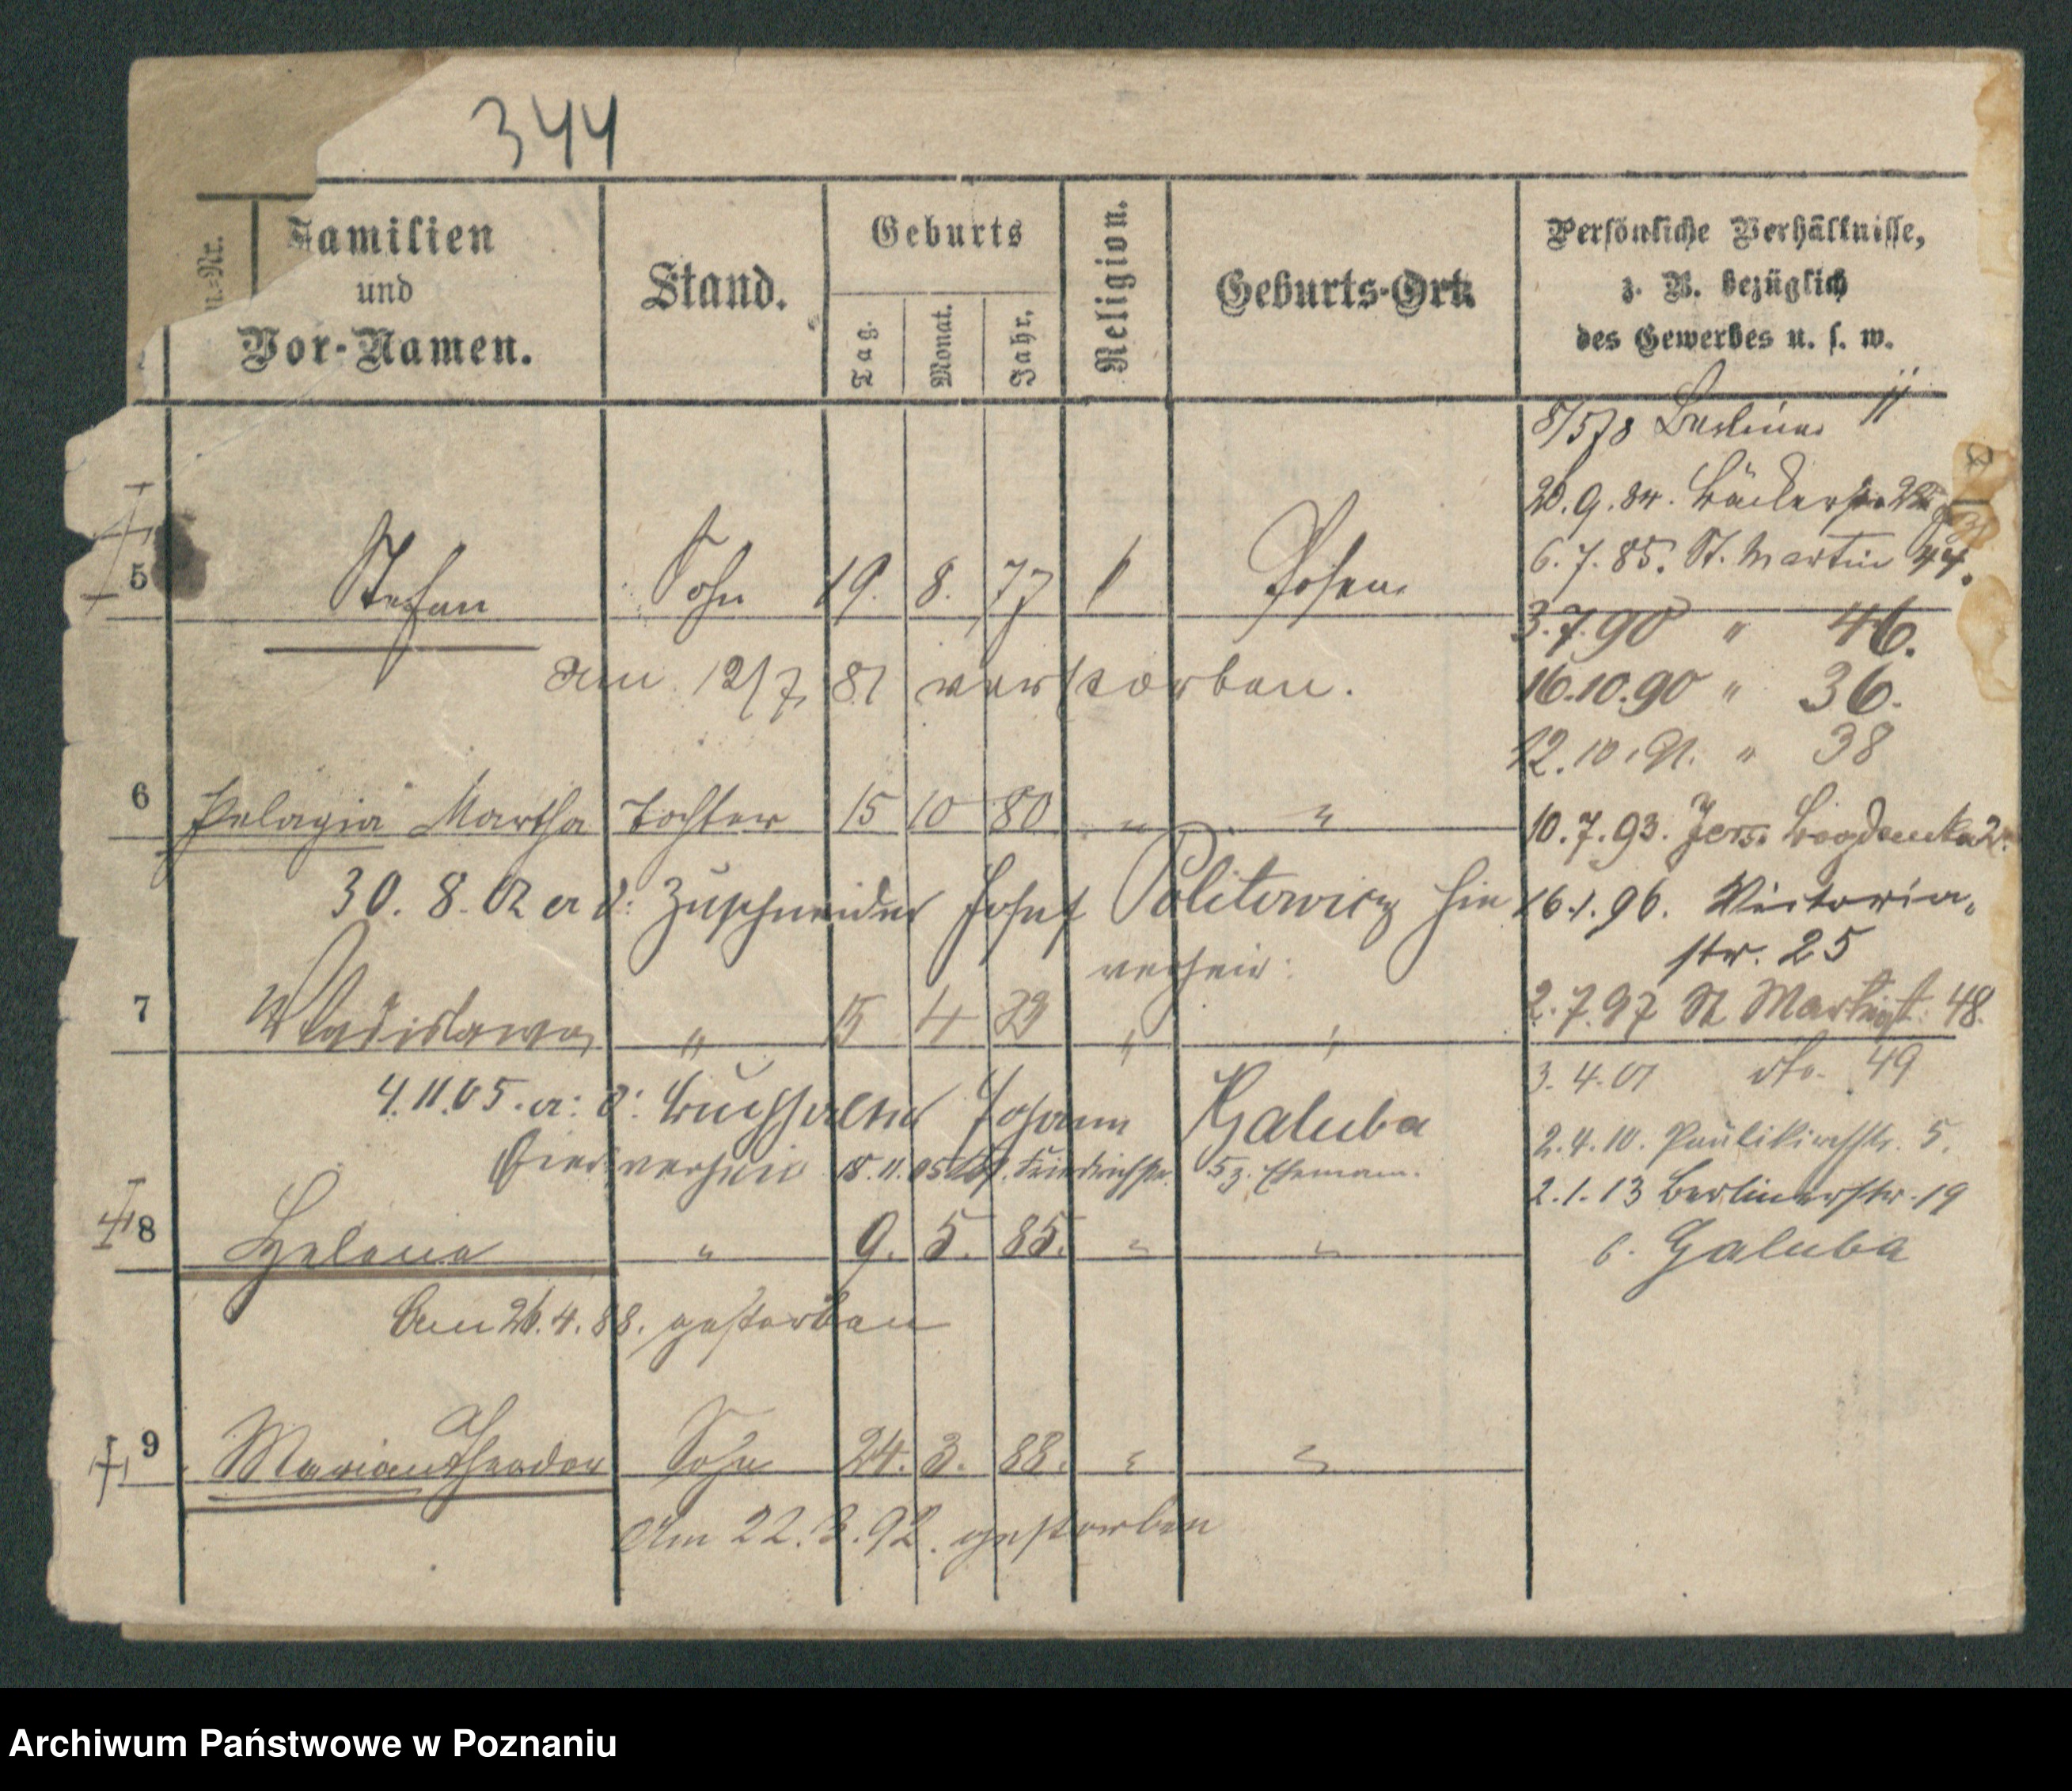 344
n.-Nr.
Familien
und
Vor-Namen.
Stand.
Geburts
Tag.
Monat.
Jahr.
Religion.
Geburts-Ort.
Persönliche Verhältnisse,
z. B. bezüglich
des Gewerbes u. s. w.
8/5 78 Berliner 11
20.9.84. Bäckerstr.
6.7.85. St. Martin 44.
5 Stefan Sohn 19. 8. 77 Posen
3.7.90 " 46.
am 12/7 81 verstorben.
16.10.90 " 36.
12.10.91. " 38
6 Pelagia Martha Tochter 15 10 80 " "
10.7.93. Jers. Bogdanka 2.
30. 8. 02 a d: Zuschneider Josef Politowicz hier
verheir:
16.1.96. Victoria-
str. 25
7 Wladislawa " 15 4 83 " "
2.7.97 St Martinst. 48.
3.4.01 dto. 49
4.11.05. a: d: Buchhalter Johann Galuba
hier verheir 18.11.05 Friedrichstr. 5 z. Ehemann.
2.4.10. Paulikirchstr. 5.
2.1.13 Berlinerstr. 19
b. Galuba
8 Helena " 9. 5. 85. " "
Am 26.4.88. gestorben
9 Marian Theodor Sohn 24. 3. 88. " "
Am 22.3.92. gestorben
Archiwum Państwowe w Poznaniu